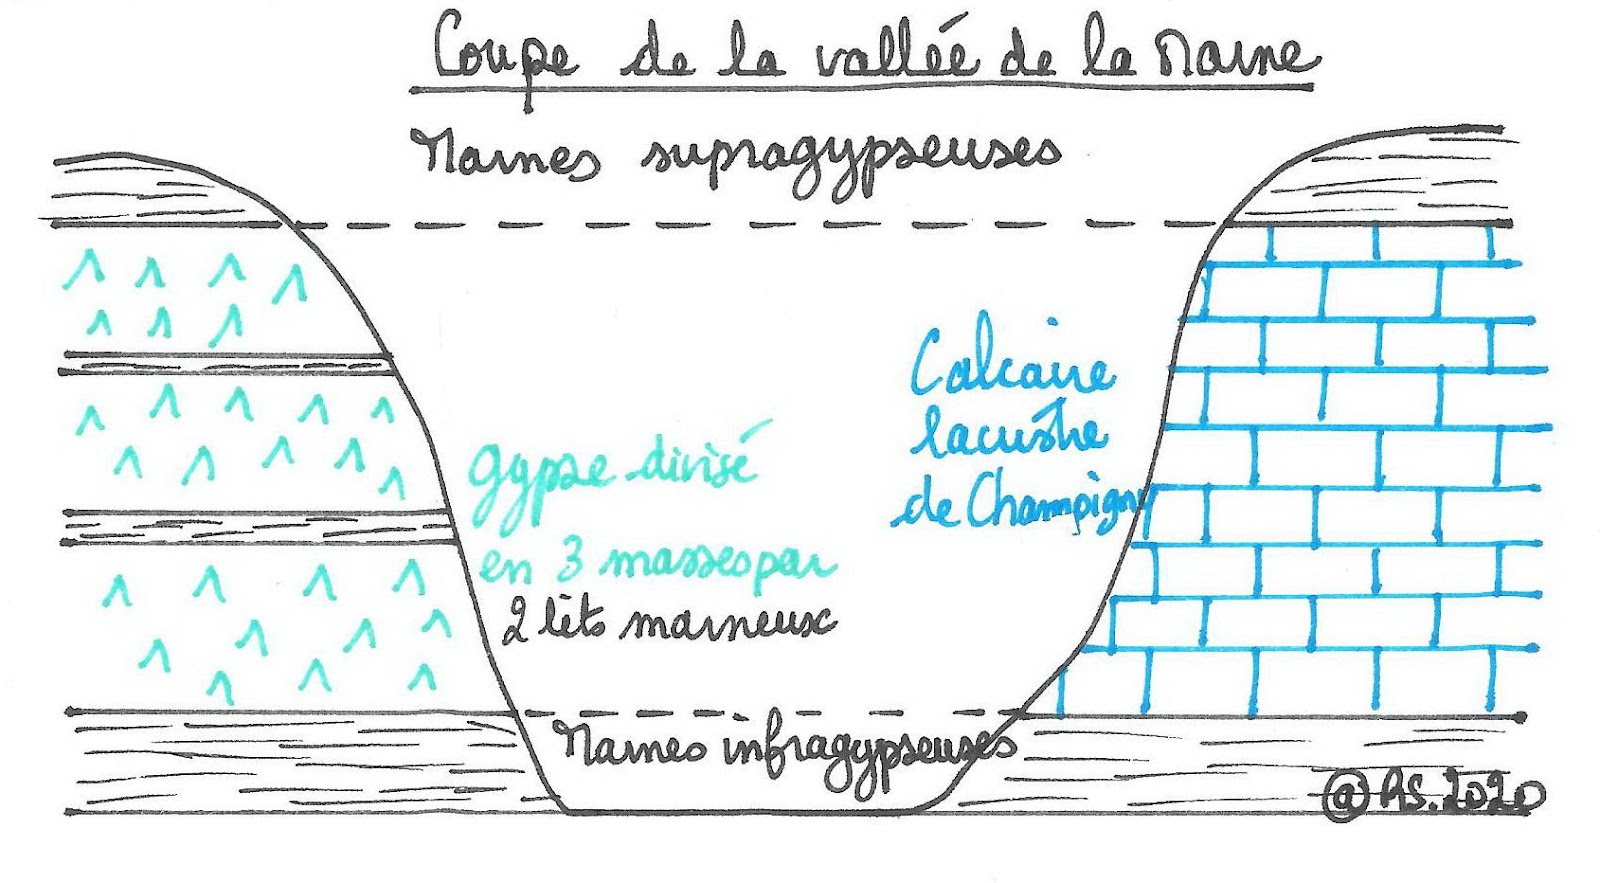 Coupe de la vallée de la Marne
Marnes supragypseuses
Calcaire
lacustre
de Champigny
gypse divisé
en 3 masses par
2 lits marneux
Marnes infragypseuses
@RS.2020